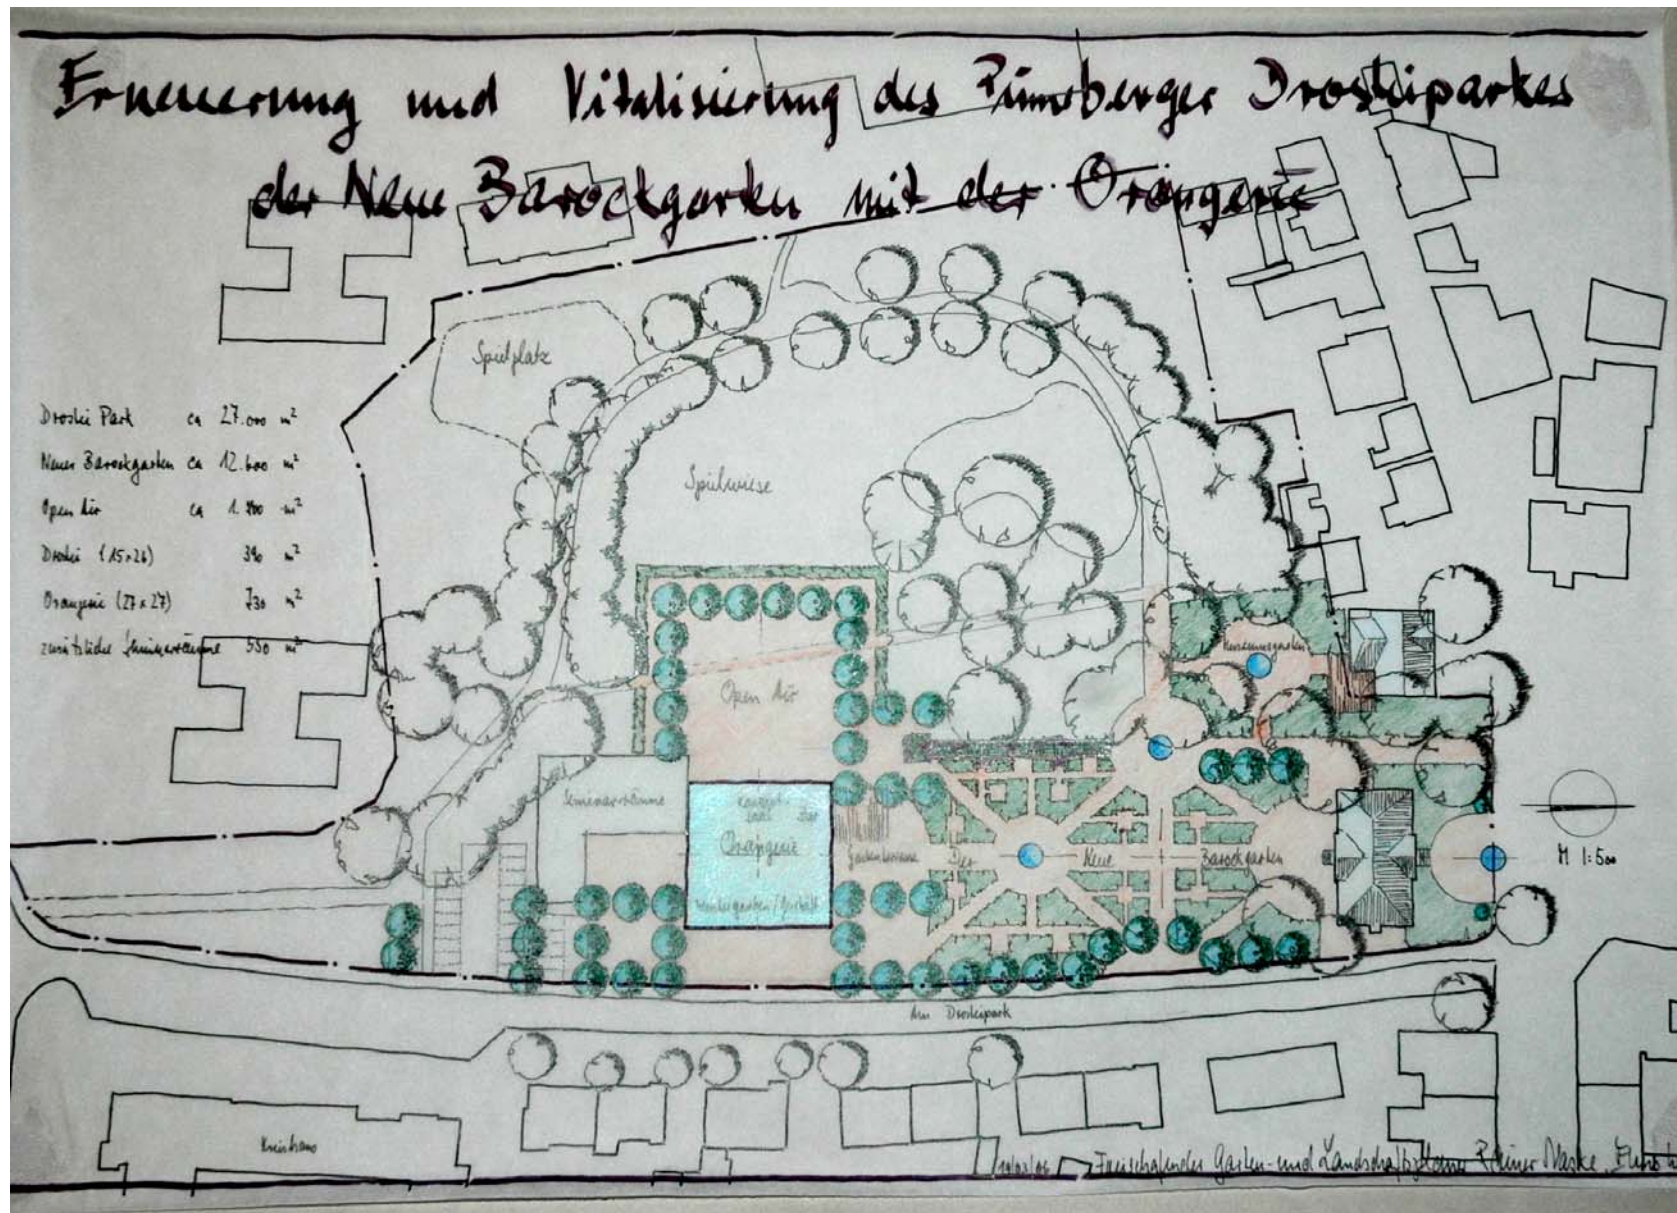 Erneuerung und Vitalisierung des Pinneberger Drosteiparkes
der Neue Barockgarten mit der Orangerie
Spielplatz
Drostei Park ca 27.000 m²
Neuer Barockgarten ca 12.600 m²
Open Air ca m²
Drostei (15×26) 390 m²
Orangerie (27×27) 730 m²
zusätzliche Seminarräume 550 m²
Spielwiese
Open Air
Seminarräume
Konzert-
saal
Orangerie
Wintergarten /
Gartenterrasse
Der Neue Barockgarten
M 1:500
Am Drosteipark
Kreishaus
Freischaffender Garten- und Landschaftsplaner Rainer Maske